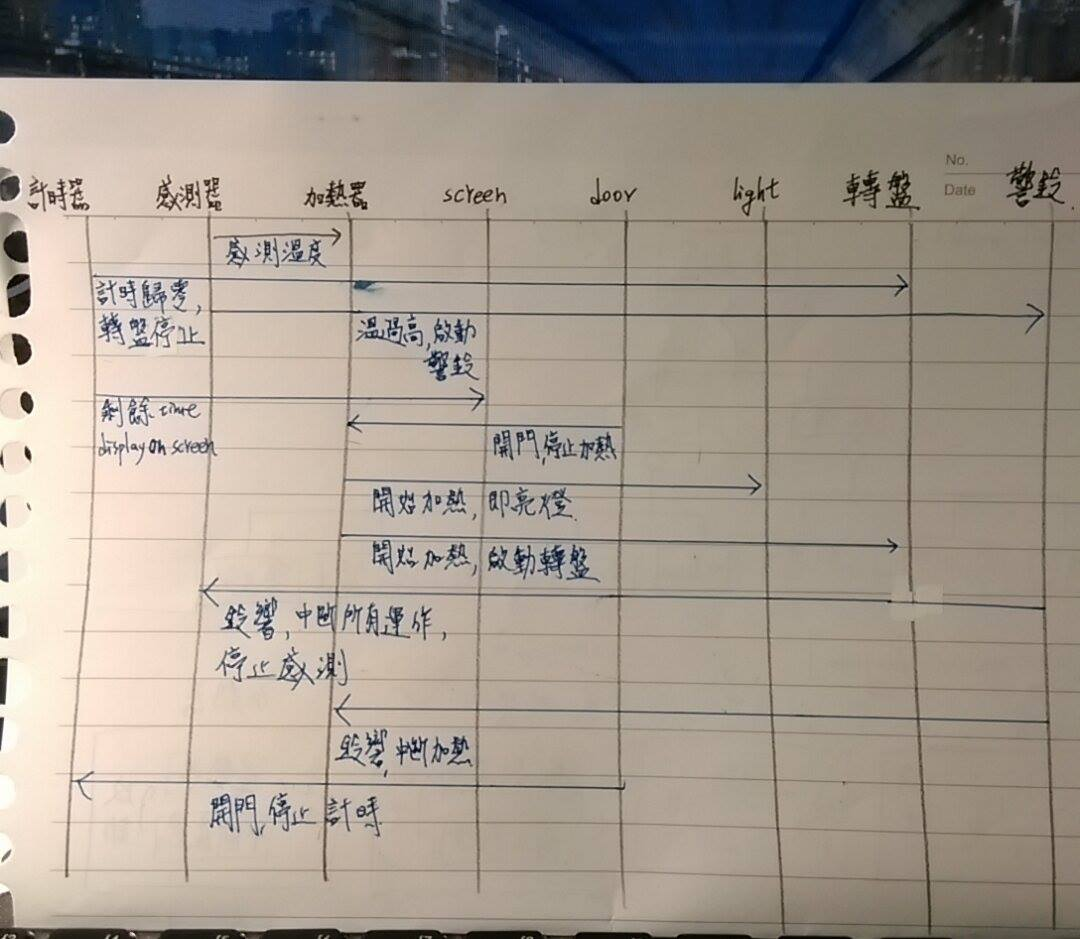 No.
Date
計時器 感測器 加熱器 screen door light 轉盤 警鈴
感測溫度
計時歸零,
轉盤停止
溫過高,啟動
警鈴
剩餘 time
display on screen
開門,停止加熱
開始加熱,即亮燈
開始加熱,啟動轉盤
鈴響,中斷所有運作,
停止感測
鈴響,中斷加熱
開門,停止計時